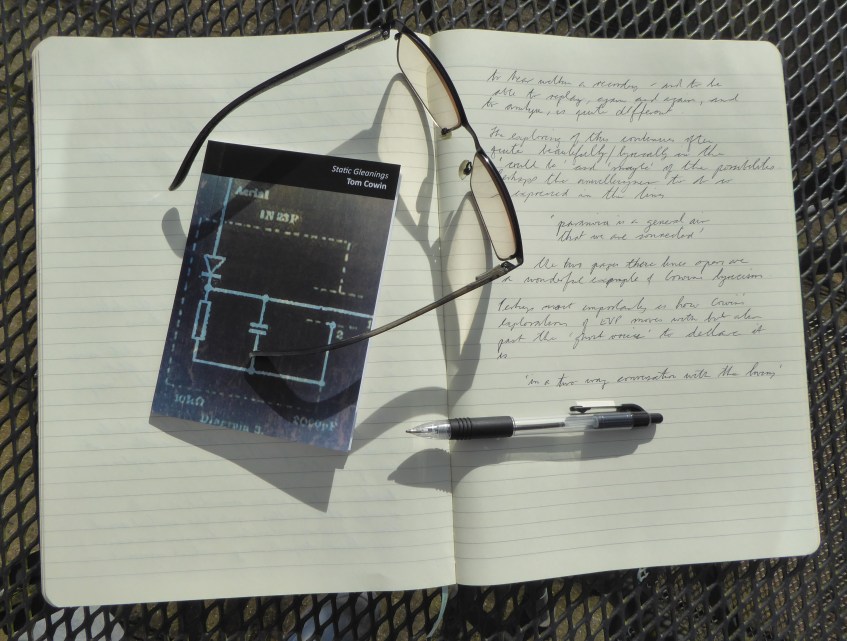 Static Gleanings
Tom Cowin
Aerial
1N 23P
2
10kΩ
Diagram 2.
to hear within a recording - and to be
able to replay, again and again, and
to analyse, is quite different
The exploring of this continues often
quite beautifully/lyrically in the
'could be' and 'maybe' of the possibilities
perhaps the to it is
expressed in the lines
'paranoia is a general awe
that we are connected'
the two pages these lines open are
a wonderful example of Cowins lyricism.
Perhaps most importantly is how Cowin's
exploration of EVP moves with but also
past the 'ghost voice' to declare it
is
'in a two way conversation with the living'